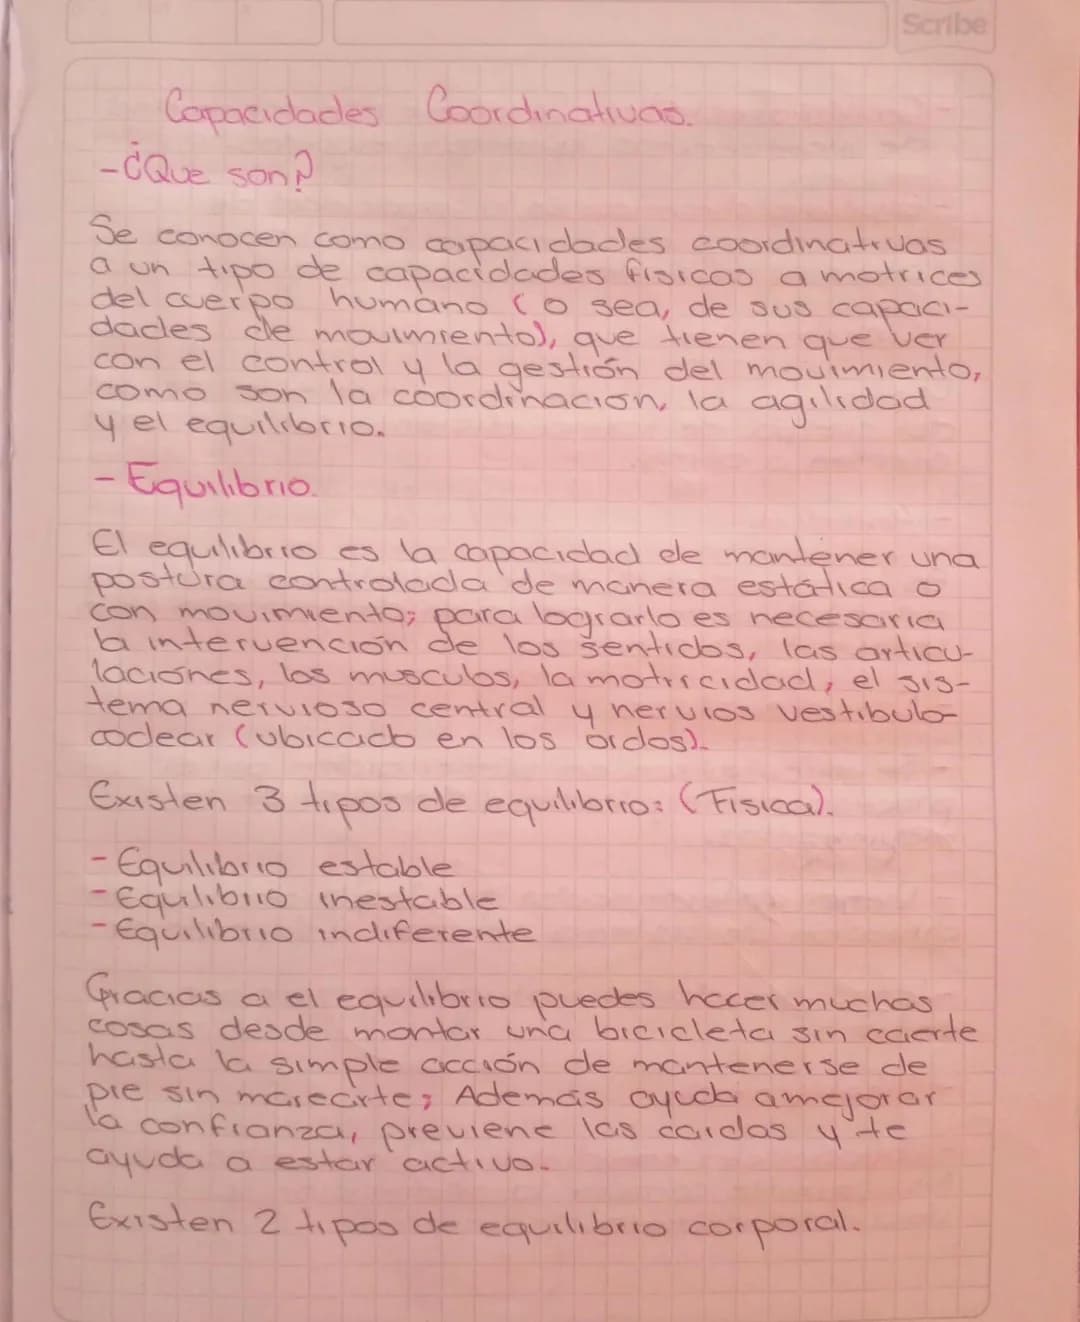 Scribe
Capacidades Coordinativas.
-¿Que son?
Se conocen como capacidades coordinativas
a un tipo de capacidades fisicas a motrices
del cuerpo humano (o sea, de sus capaci-
dades de movimiento), que tienen que ver
con el control y la gestión del movimiento,
como son la coordinacion, la agilidad
y el equilibrio.
- Equilibrio.
El equilibrio es la capacidad de mantener una
postura controlada de manera estática o
con movimiento; para lograrlo es necesaria
la intervención de los sentidos, las articu-
laciones, los musculos, la motricidad, el sis-
tema nervioso central y nervios vestibulo-
coclear (ubicado en los oidos).
Existen 3 tipos de equilibrio: (Fisica).
- Equilibrio estable
- Equilibrio inestable
- Equilibrio indiferente
Gracias a el equilibrio puedes hacer muchas
cosas desde montar una bicicleta sin caerte
hasta la simple acción de mantenerse de
pie sin marearte; Además ayuda a mejorar
la confianza, previene las caidas y te
ayuda a estar activo.
Existen 2 tipos de equilibrio corporal.